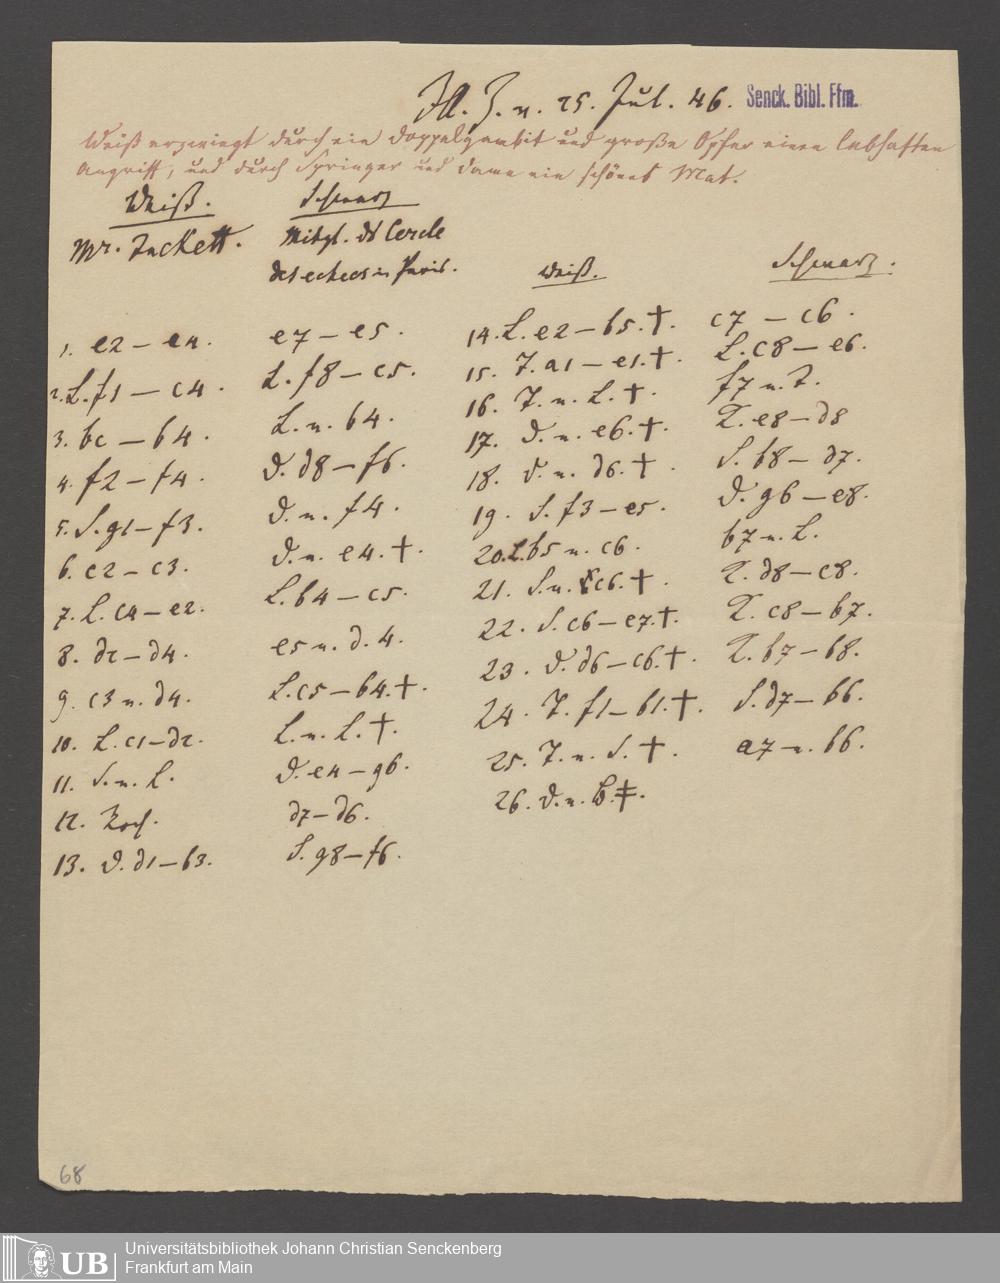 Ill. Z. v. 25. Jul. 46. Senck. Bibl. Ffm.
Weiß erzwingt durch ein Doppelgambit und große Opfer einen lebhaften
Angriff, und durch Springer und Dame ein schönes Mat.
Weiß. Schwarz
Mr. Tuckett. Mitgl. ds Cercle
des echecs in Paris.
Weiß. Schwarz.
1. e2 – e4. e7 – e5.
2. L. f1 – c4. L. f8 – c5.
3. b2 – b4. L. n. b4.
4. f2 – f4. D. d8 – f6.
5. S. g1 – f3. D. n. f4.
6. c2 – c3. D. n. e4. †
7. L. c4 – e2. L. b4 – c5.
8. d2 – d4. e5 n. d. 4.
9. c3 n. d4. L. c5 – b4. †
10. L. c1 – d2. L. n. L. †.
11. S. n. L. D. e4 – g6.
12. Roch. d7 – d6.
13. D. d1 – b3. S. g8 – f6.
14. L. e2 – b5. †. c7 – c6.
15. T. a1 – e1. †. L. c8 – e6.
16. T. n. L. †. f7 n. T.
17. D. n. e6. †. K. e8 – d8
18. D. n. d6. †. S. b8 – d7.
19. S. f3 – e5. D. g6 – e8.
20. L. b5 n. c6. b7 n. L.
21. S. n. c6. †. K. d8 – c8.
22. S. c6 – e7. †. K. c8 – b7.
23. D. d6 – c6. †. K. b7 – b8.
24. T. f1 – b1. †. S. d7 – b6.
25. T. n. S. †. a7 n. b6.
26. D. n. B. ‡.
68
UB
Universitätsbibliothek Johann Christian Senckenberg
Frankfurt am Main